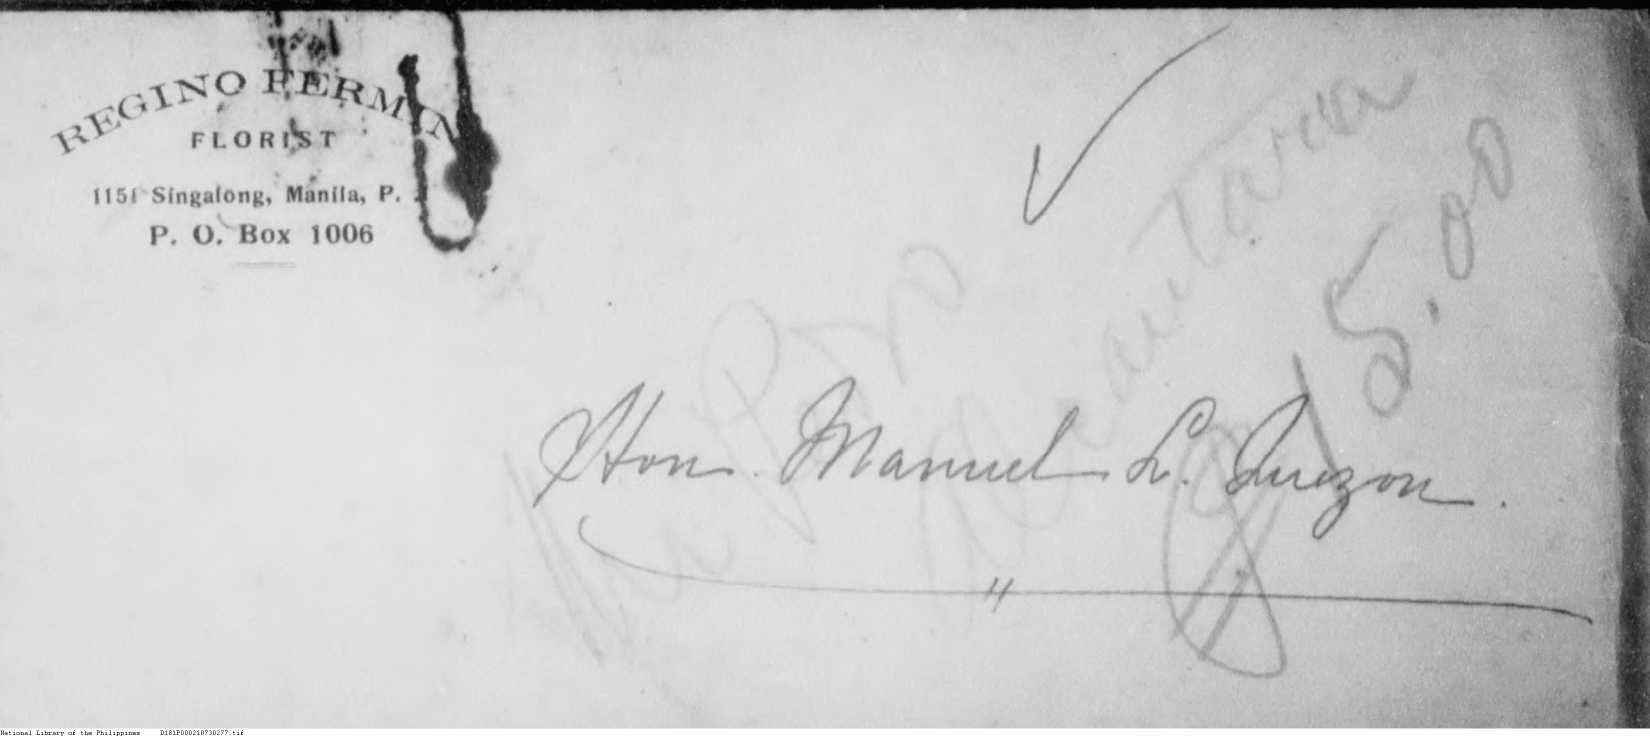 REGINO FERMIN
FLORIST
1151 Singalong, Manila, P. I.
P. O. Box 1006
Hon. Manuel L. Quezon.
15.00
National Library of the Philippines D181P000210730277.tif